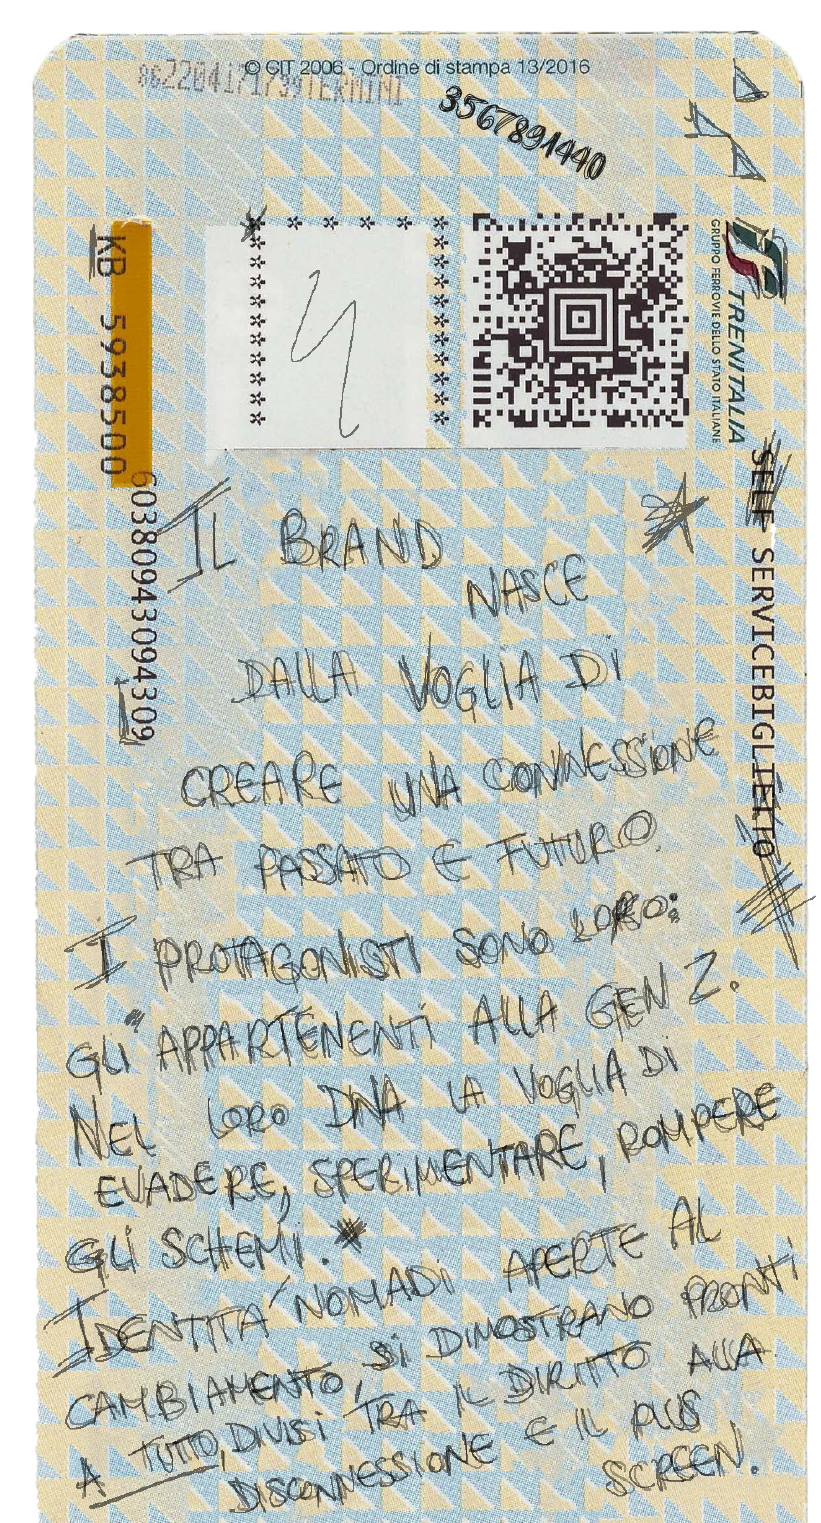 © CIT 2006 - Ordine di stampa 13/2016
TERMINI
3567891440
KB 5938500
6038094309309
TRENITALIA
GRUPPO FERROVIE DELLO STATO ITALIANE
SELF SERVICEBIGLIETTO
IL BRAND
NASCE
DALLA VOGLIA DI
CREARE UNA CONNESSIONE
TRA PASSATO E FUTURO.
I PROTAGONISTI SONO LORO:
GLI APPARTENENTI ALLA GEN Z.
NEL LORO DNA LA VOGLIA DI
EVADERE, SPERIMENTARE, ROMPERE
GLI SCHEMI.*
IDENTITA' NOMADI APERTE AL
CAMBIAMENTO, SI DIMOSTRANO PRONTI
A TUTTO, DIVISI TRA IL DIRITTO ALLA
DISCONNESSIONE E IL PLUS
SCREEN.